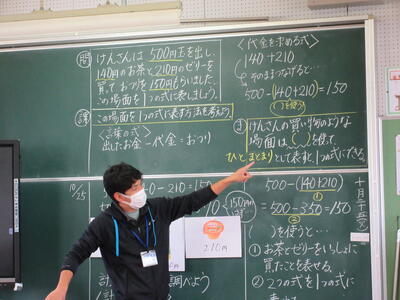 問 けんさんは、500円玉を出し、
140円のお茶と、210円のゼリーを
買って、おつりを150円もらいました。
この場面を1つの式に表しましょう。
課 この場面を1つの式に表す方法を考えよう。
〈言葉の式〉
出したお金－代金＝おつり
〈代金を求める式〉
140＋210
そのままつなげると…
500－(140＋210)＝150
( )を使う
ま けんさんの買い物のような
場面は( )を使って、
ひとまとまりとして表すと1つの式にできる。
10/25
0－210＝150
150円
210円
調べよう
500－(140＋210)
①
＝500－350＝150
②
( )を使うと…
① お茶とゼリーをいっしょに
買たことを表せる。
② 2つの式を1つの式に
十月二十五